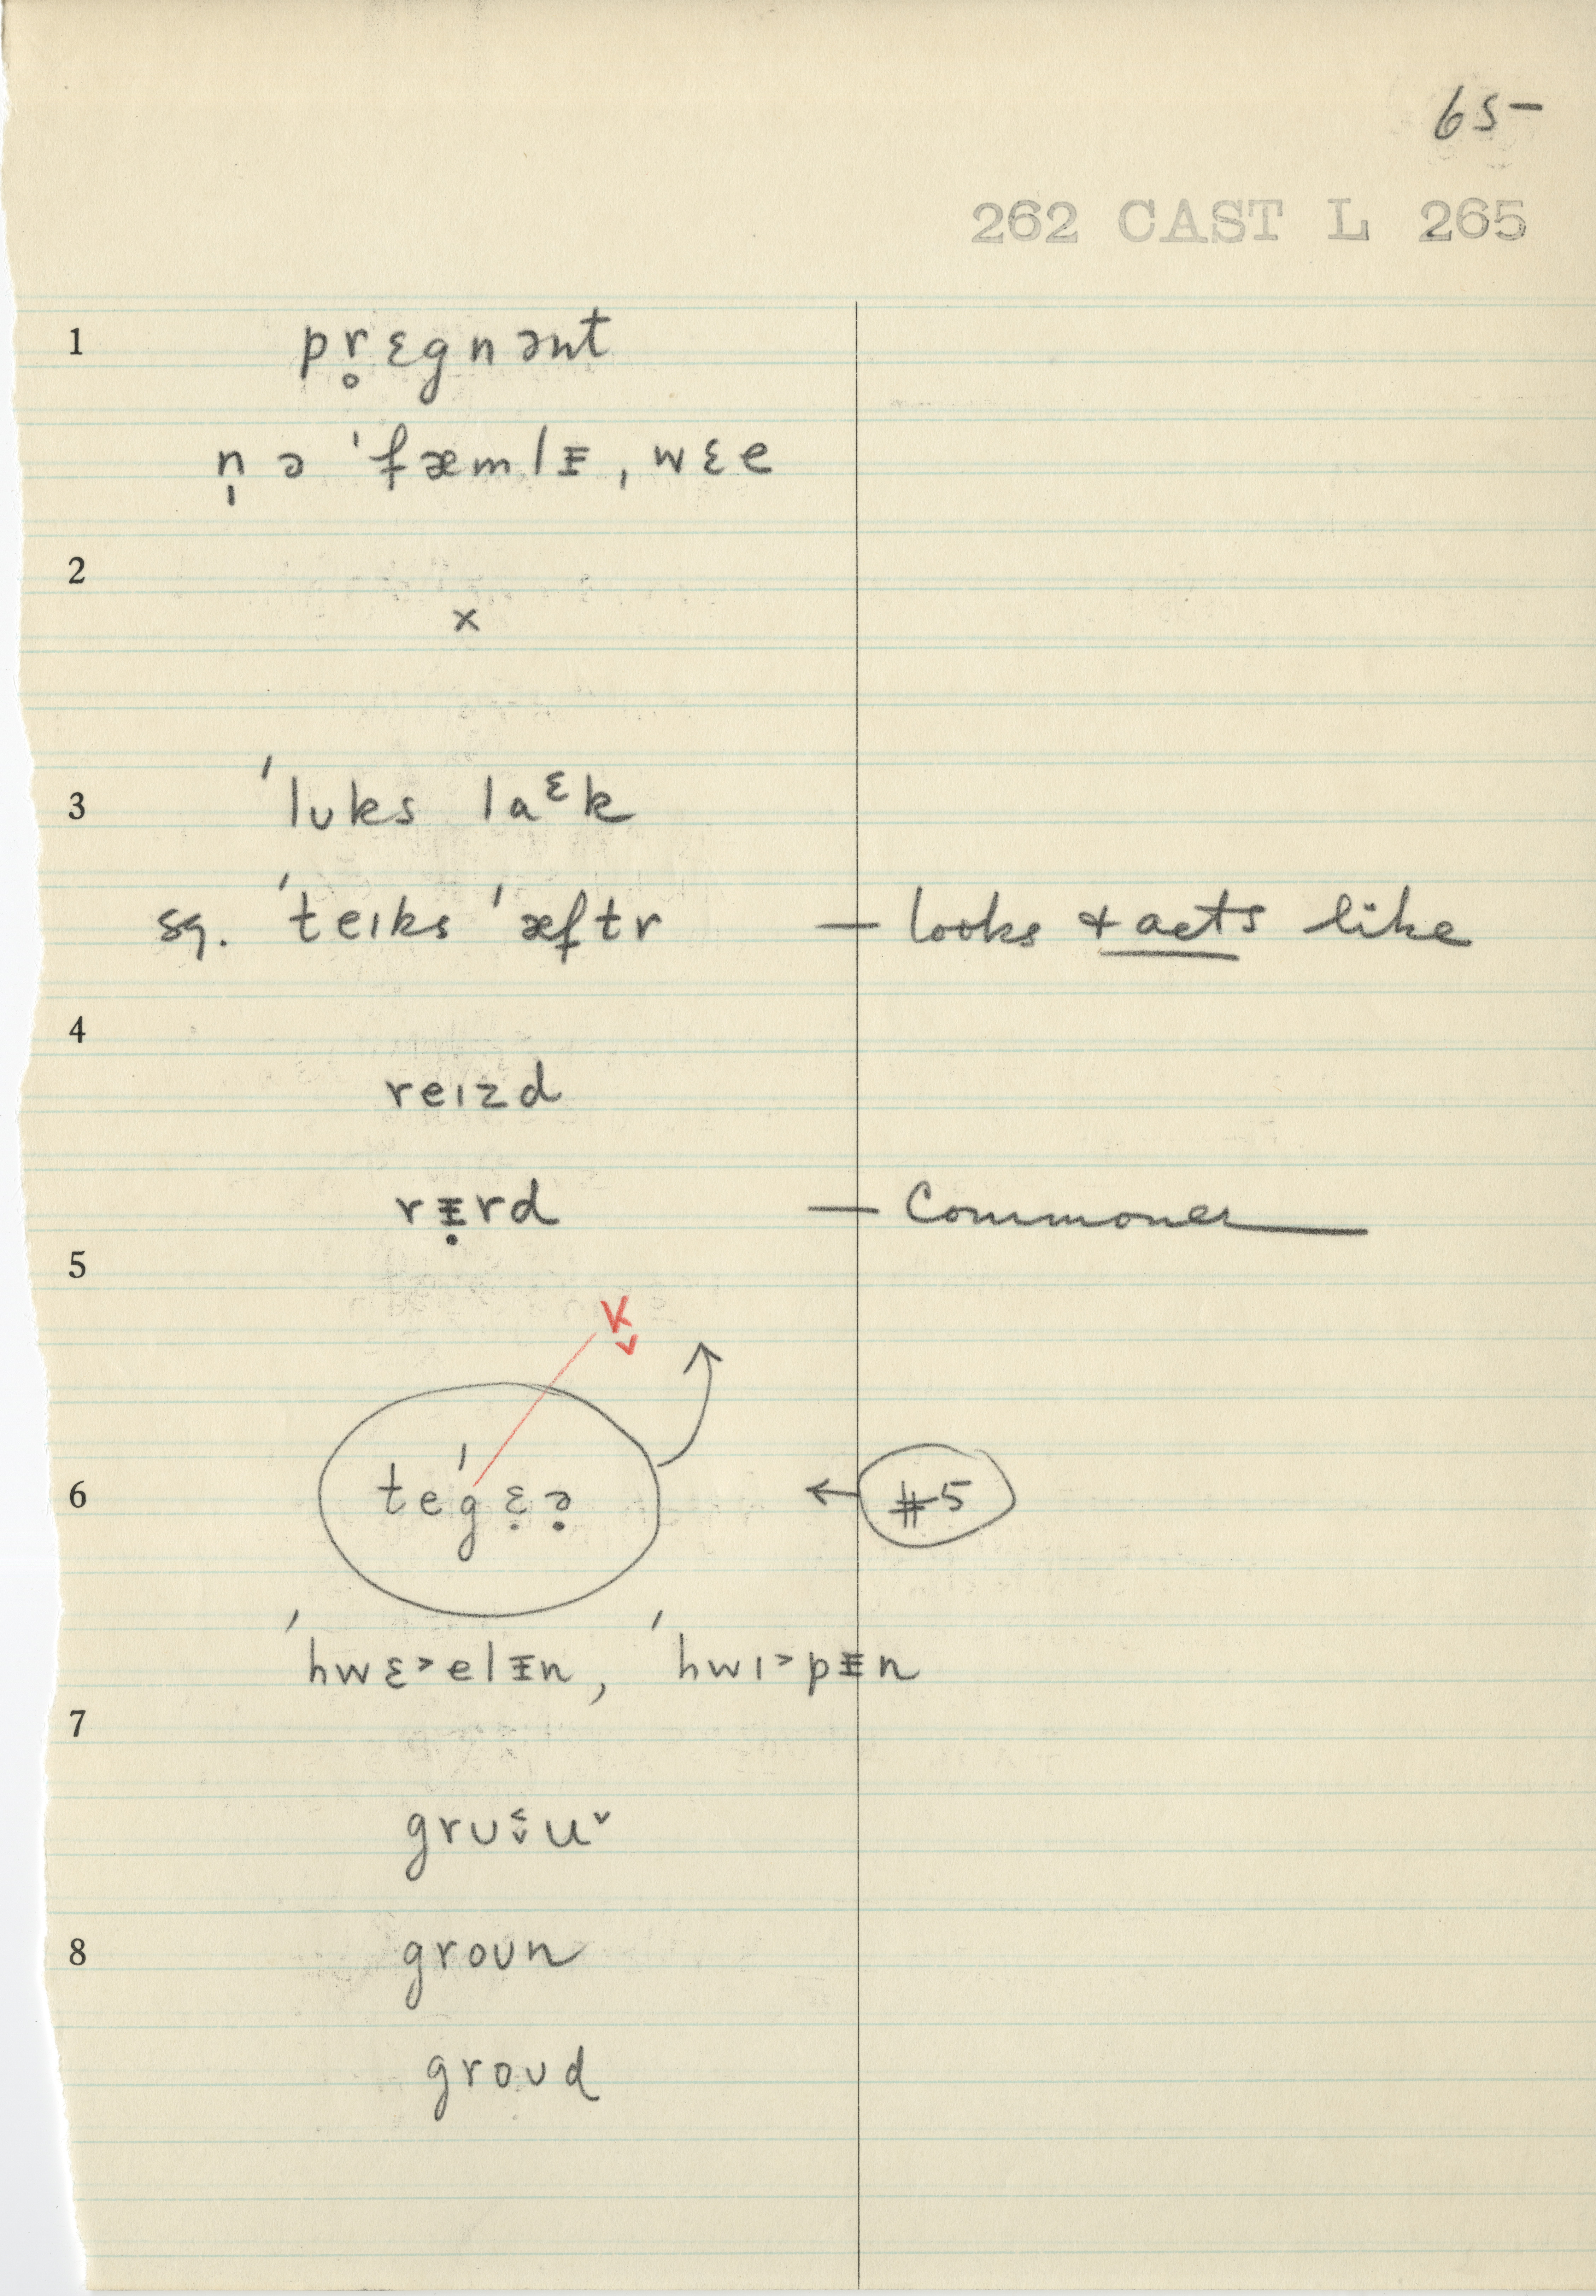 65-
262 CAST L 265
1 pr̥ɛgnənt
n̩ ə ˈfæmlᵻ, wɛe
2
x
3 ˈlʊks laᵋk
sq. ˈteɪks ˈæftr — looks & acts like
4
reɪzd
rᵻ̣rd — Commoner
5
K̬
6 teˈgɛ̣ə̣ ← #5
ˈhwɛ˃elᵻn, ˈhwɪ˃pᵻn
7
grʊ꞉u˅
8 groʊn
groʊd